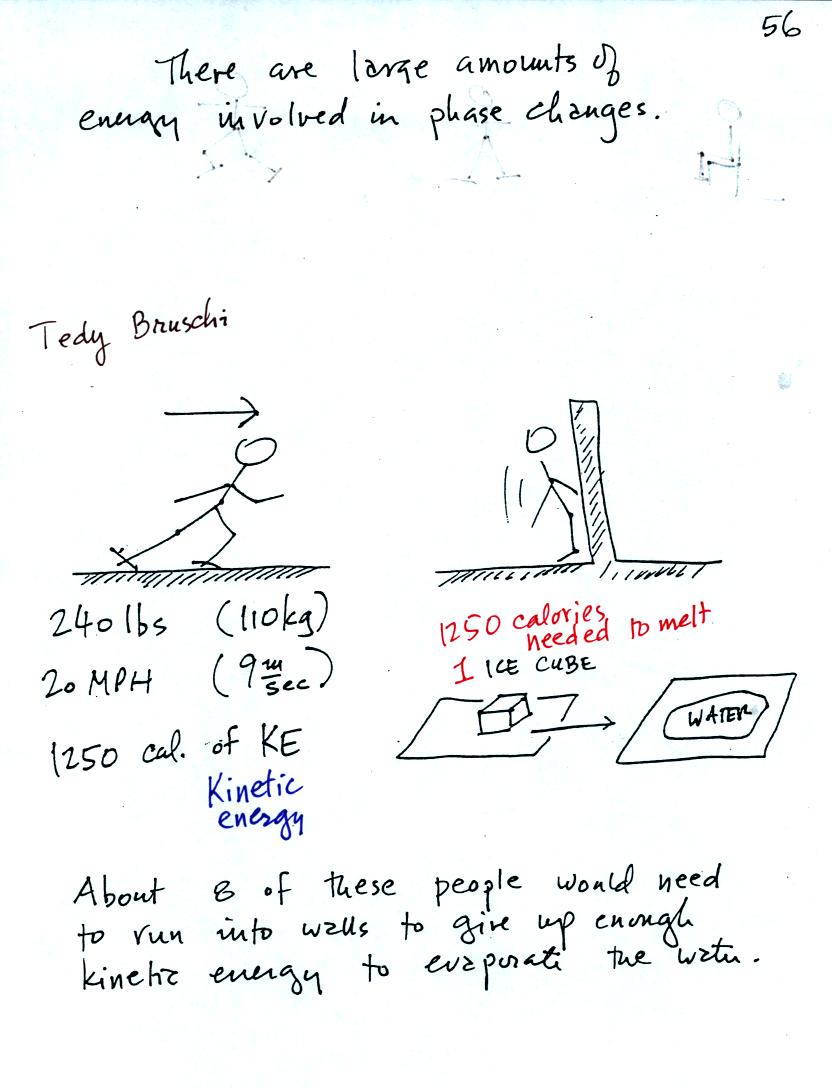 56
There are large amounts of
energy involved in phase changes.
Tedy Bruschi
240 lbs (110kg)
20 MPH (9 m/sec)
1250 cal. of KE
Kinetic
energy
1250 calories
needed to melt
1 ICE CUBE
WATER
About 8 of these people would need
to run into walls to give up enough
kinetic energy to evaporate the water.